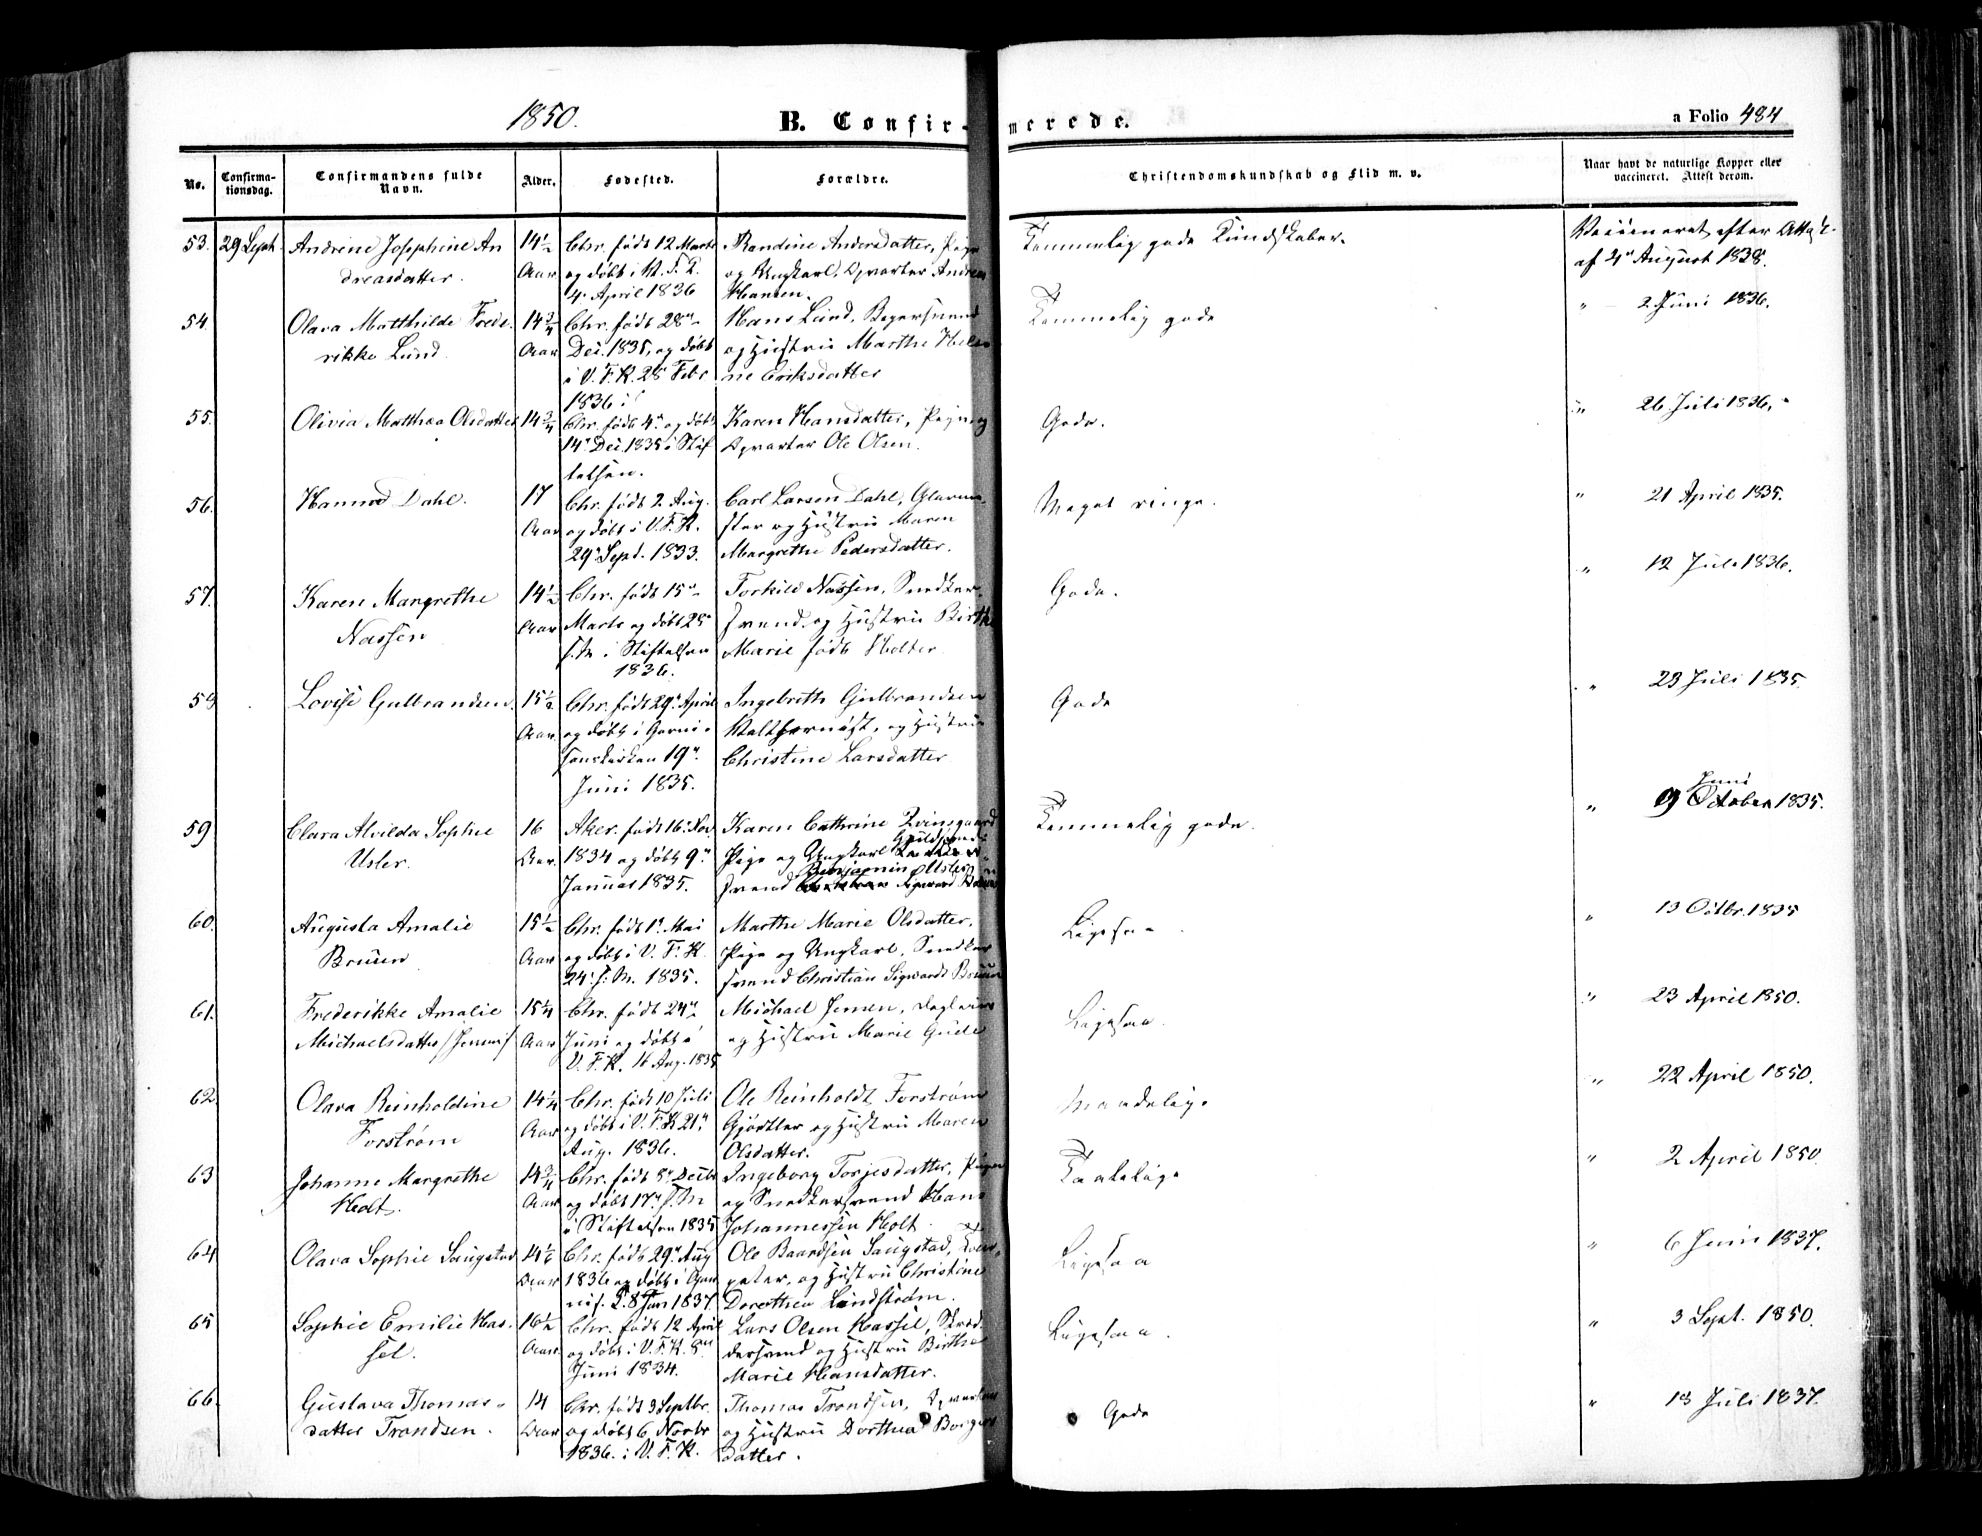 1850.
B. Confirmerede.
a Folio 484
No.
Confirma-
tionsdag.
Confirmandens fulde
Navn.
Alder.
Fødested.
Forældre.
Christendomskundskab og Flid m. v.
Naar havt de naturlige Kopper eller
vaccineret. Attest derom.
53. 29 Sept. Andrine Josephine An
dreasdatter.
14 1/2
Aar
Chr. født 12 Marts
og døbt i V. F. K.
4. April 1836
Randine Andersdatter, Pige
og Ungkarl, Opvarter Andreas
Hansen.
Temmelig gode Kundskaber.
Vaccineret efter Attest
af 4 August 1838.
54. Olava Matthilde Frede-
rikke Lund.
14 3/4
Aar
Chr. født 28
Dec. 1835, og døbt
i V. F. K. 28 Febr
1836
Hans Lund,
og Hustru Marthe Hele-
ne Eriksdatter
Temmelig gode
" 2 Juni 1836.
55. Olivia Matthea Olsdatter
14 3/4
Chr. født 4 og døbt
14 Dec. 1835 i Stif
telsen.
Karen Hansdatter, Pige og
Opvarter Ole Olsen.
Gode.
" 26 Juli 1836.
56. Hanna Dahl.
17
Aar
Chr. født 2 Aug.
og døbt i V. F. K.
29 Sept. 1833.
Carl Larsen Dahl, Glarme-
ster og Hustru Maren
Margrethe Pedersdatter.
Meget ringe.
" 21 April 1835.
57. Karen Margrethe
Nassen
14 1/2
Aar
Chr. født 15
Marts og døbt 28
s. M. i Stiftelsen
1836.
Torkild Nassen, Snedker-
svend og Hustru Birthe
Marie født Holter
Gode.
" 12 Juli 1836.
58 Lovise Gulbrandsen.
15 1/2
Aar
Chr. født 29 April
og døbt i Garni-
sonskirken 19
Juni 1835.
Ingebreth Gulbrandsen
Valthornist, og Hustru
Christine Larsdatter
Gode
" 23 Juli 1835.
59 Clara Alvilda Sophie
Usler.
16
Aar.
Aker. født 16 Nov
1834 og døbt 9
Januar 1835.
Karen Cathrine
Pige og Ungkarl
svend Benjamin Usler
Temmelig gode.
Juni
" 9 October 1835.
60. Augusta Amalie
Bruun
15 1/2
Aar
Chr. født 1 Mai
og døbt i V. F. K.
24 s. M. 1835.
Marthe Marie Olsdatter,
Pige og Ungkarl, Snedker
svend Christian Sigwardt Bruun
Ligesaa.
" 13 Octbr. 1835
61. Frederikke Amalie
Michaelsdatter
15 1/4
Aar
Chr. født 24
Juni og døbt i
V. F. K. 16 Aug. 1835
Michael Jensen,
og Hustru Marie Gude
Ligesaa.
" 23 April 1850.
62. Olava Reinholdine
Forstrøm
14 1/4
Aar
Chr. født 10 Juli
og døbt i V. F. K 21
Aug. 1836.
Ole Reinholdt Forstrøm
Gjørtler og Hustru Maren
Olsdatter.
Maadelig.
" 22 April 1850.
63 Johanne Margrethe
Holt.
14 3/4
Aar
Chr. født 5 Decbr
og døbt 17 s. M
i Stiftelsen 1835
Ingeborg Torjesdatter, Pige
og Snedkersvend Hans
Johannessen Holt.
Taalelig.
" 2 April 1850
64 Olava Sophie Saugstad
14 1/6
Aar
Chr. født 29 Aug
1836 og døbt i Gar
nis. K. 8 Jan 1837.
Ole Baardsen Saugstad,
og Hustru Christine
Dorothea Lindstrøm.
Ligesaa
" 6 Juni 1837.
65 Sophie Emilie Has-
sel.
16 1/2
Aar
Chr. født 12 April
og døbt i V. F. K. 8
Juni 1834.
Lars Olsen Hassel, Skræd
dersvend og Hustru Birthe
Marie Hansdatter.
Ligesaa.
" 3 Sept. 1850.
66. Gustava Thomas-
datter Trondsen.
14
Aar
Chr. født 3 Septbr.
og døbt 6 Novbr
1836. i V. F. K.
Thomas Trondsen, Opvarter
og Hustru Dorthea Borgers
datter.
Gode
" 13 Juli 1837.